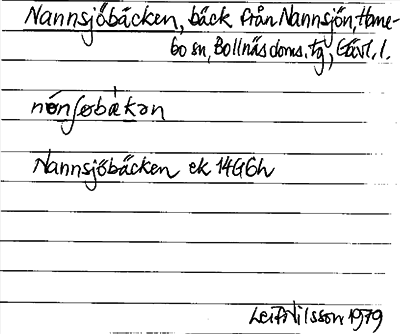 Nannsjöbäcken, bäck från Nannsjön, Hane-
bo sn, Bollnäs doms. tg, Gävl. l.
Nannsjöbäcken ek 14G6h
Leif Nilsson 1979